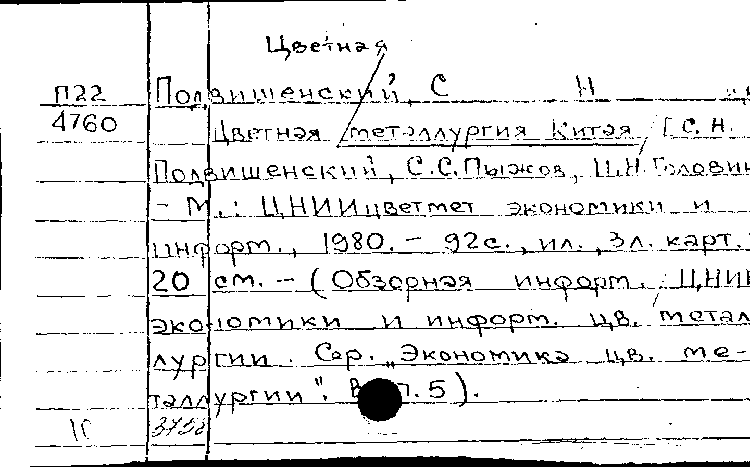 Цветная
П22 Подвишенский, С Н
4760 Цветная металлургия Китая / [С.Н.
Подвишенский, С.С. Пыжов, Ц.Н. Головин
- М.: ЦНИИцветмет экономики и
информ., 1980. - 92с., ил., 3л. карт.
20 см. - (Обзорная информ. : ЦНИИ
экономики и информ. цв. метал
лургии. Сер. „Экономика цв. ме-
таллургии". В п.5).